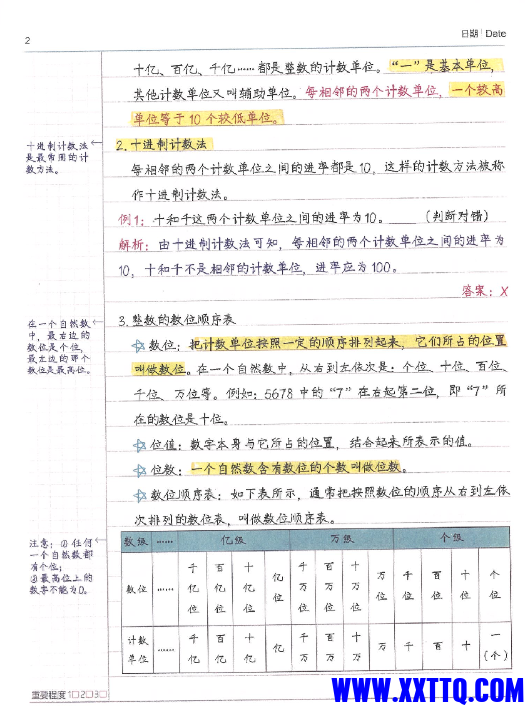 2
日期 Date
十亿、百亿、千亿……都是整数的计数单位。“一”是基本单位，
其他计数单位又叫辅助单位。每相邻的两个计数单位，一个较高
单位等于10个较低单位。
十进制计数法
是最常用的计
数方法。
2.十进制计数法
每相邻的两个计数单位之间的进率都是10，这样的计数方法被称
作十进制计数法。
例1：十和千这两个计数单位之间的进率为10。____（判断对错）
解析：由十进制计数法可知，每相邻的两个计数单位之间的进率为
10，十和千不是相邻的计数单位，进率应为100。
答案：X
在一个自然数
中，最右边的
数位是个位，
最左边的那个
数位是最高位。
3.整数的数位顺序表
数位：把计数单位按照一定的顺序排列起来，它们所占的位置
叫做数位。在一个自然数中，从右到左依次是：个位、十位、百位、
千位、万位等。例如：5678中的“7”在右起第二位，即“7”所
在的数位是十位。
位值：数字本身与它所占的位置，结合起来所表示的值。
位数：一个自然数含有数位的个数叫做位数。
数位顺序表：如下表所示，通常把按照数位的顺序从右到左依
次排列的数位表，叫做数位顺序表。
注意：①任何
一个自然数都
有个位；
②最高位上的
数字不能为0。
数级 …… 亿级 万级 个级
数位 …… 千亿位 百亿位 十亿位 亿位 千万位 百万位 十万位 万位 千位 百位 十位 个位
计数单位 …… 千亿 百亿 十亿 亿 千万 百万 十万 万 千 百 十 一（个）
重要程度 1□2□3□
WWW.XXTTQ.COM